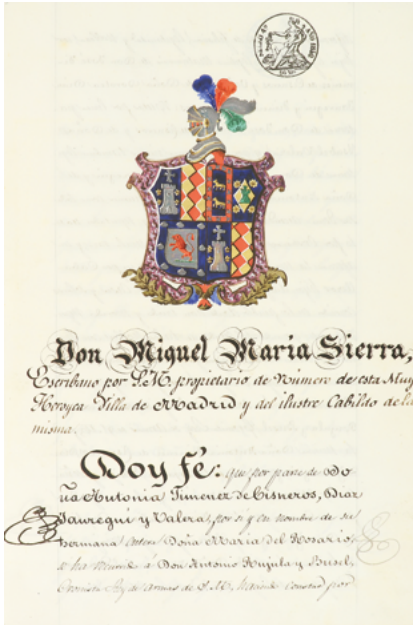 Don Miguel Maria Sierra,
Escribano por S.M. propietario de Número de esta Muy
Heroyca Villa de Madrid y del ilustre Cabildo de la
misma.
Doy fé: que por parte de Do
ña Antonia Jimenez de Cisneros, Diaz
Jauregui y Valera, por si y en nombre de su
hermana entera Doña Maria del Rosario,
se ha recurrido á Don Antonio Rujula y Busel,
Cronista Rey de armas de S.M. haciendo constar por